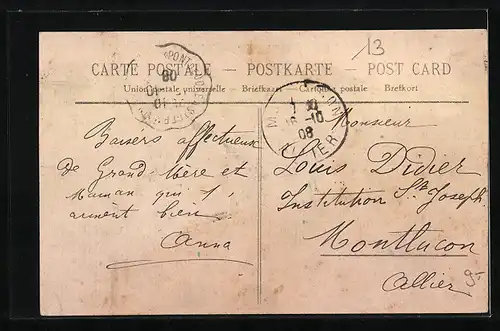 13
CARTE POSTALE - POSTKARTE - POST CARD
Union postale universelle - Briefkaart - Cartolina postale - Brefkort
08
10
1
-10
08
Baisers affectueux
de Grand Mère et
Maman qui t'
aiment bien
Anna
Monsieur
Louis Didier
Institution St Joseph
Montlucon
Allier